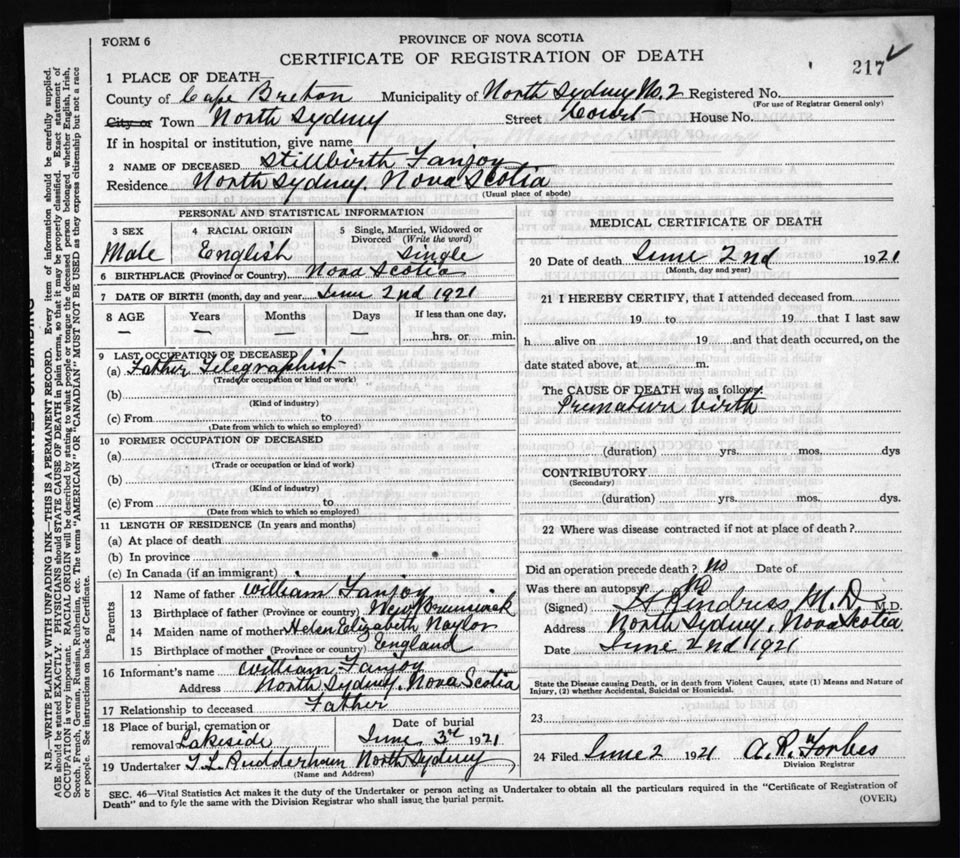 FORM 6
PROVINCE OF NOVA SCOTIA
CERTIFICATE OF REGISTRATION OF DEATH
217
1 PLACE OF DEATH—
County of Cape Breton Municipality of North Sydney No. 2 Registered No.
(For use of Registrar General only)
City or Town North Sydney Street Court House No.
If in hospital or institution, give name
2 NAME OF DECEASED Stillbirth Fanjoy
Residence North Sydney. Nova Scotia
(Usual place of abode)
PERSONAL AND STATISTICAL INFORMATION
3 SEX 4 RACIAL ORIGIN 5 Single, Married, Widowed or Divorced (Write the word)
Male English Single
6 BIRTHPLACE (Province or Country) Nova Scotia
7 DATE OF BIRTH (month, day and year) June 2nd 1921
8 AGE Years Months Days If less than one day,
— — hrs. or min.
9 LAST OCCUPATION OF DECEASED
(a) Father Telegraphist
(Trade or occupation or kind of work)
(b)
(Kind of industry)
(c) From to
(Date from which to which so employed)
10 FORMER OCCUPATION OF DECEASED
(a)
(Trade or occupation or kind of work)
(b)
(Kind of industry)
(c) From to
(Date from which to which so employed)
11 LENGTH OF RESIDENCE (In years and months)
(a) At place of death
(b) In province
(c) In Canada (if an immigrant)
Parents
12 Name of father William Fanjoy
13 Birthplace of father (Province or country) New Brunswick
14 Maiden name of mother Helen Elizabeth Naylor
15 Birthplace of mother (Province or country) England
16 Informant's name William Fanjoy
Address North Sydney. Nova Scotia
17 Relationship to deceased Father
18 Place of burial, cremation or removal Lakeside Date of burial June 3rd 1921
19 Undertaker T. L. Rudderham North Sydney
(Name and Address)
MEDICAL CERTIFICATE OF DEATH
20 Date of death June 2nd 1921
(Month, day and year)
21 I HEREBY CERTIFY, that I attended deceased from
19 to 19 that I last saw
h alive on 19 and that death occurred, on the
date stated above, at m.
The CAUSE OF DEATH was as follows:
Premature birth
(duration) yrs. mos. dys
CONTRIBUTORY
(Secondary)
(duration) yrs. mos. dys.
22 Where was disease contracted if not at place of death?
Did an operation precede death? No Date of
Was there an autopsy? No
(Signed) M.D. M.D.
Address North Sydney, Nova Scotia.
Date June 2nd 1921
State the Disease causing Death, or in death from Violent Causes, state (1) Means and Nature of
Injury, (2) whether Accidental, Suicidal or Homicidal.
23
24 Filed June 2 1921 A. R. Forbes
Division Registrar
SEC. 46—Vital Statistics Act makes it the duty of the Undertaker or person acting as Undertaker to obtain all the particulars required in the "Certificate of Registration of
Death" and to fyle the same with the Division Registrar who shall issue the burial permit.
(OVER)
N.B.—WRITE PLAINLY WITH UNFADING INK—THIS IS A PERMANENT RECORD. Every item of information should be carefully supplied.
AGE should be stated EXACTLY. PHYSICIANS should STATE CAUSE OF DEATH in plain terms, so that it may be properly classified. Exact statement of
OCCUPATION is very important. RACIAL ORIGIN will be described by stating to what people or tongue the deceased person belonged whether English, Irish,
Scotch, French, German, Russian, Ruthenian, etc. The terms "AMERICAN" OR "CANADIAN" MUST NOT BE USED as they express citizenship but not a race
or people. See instructions on back of Certificate.